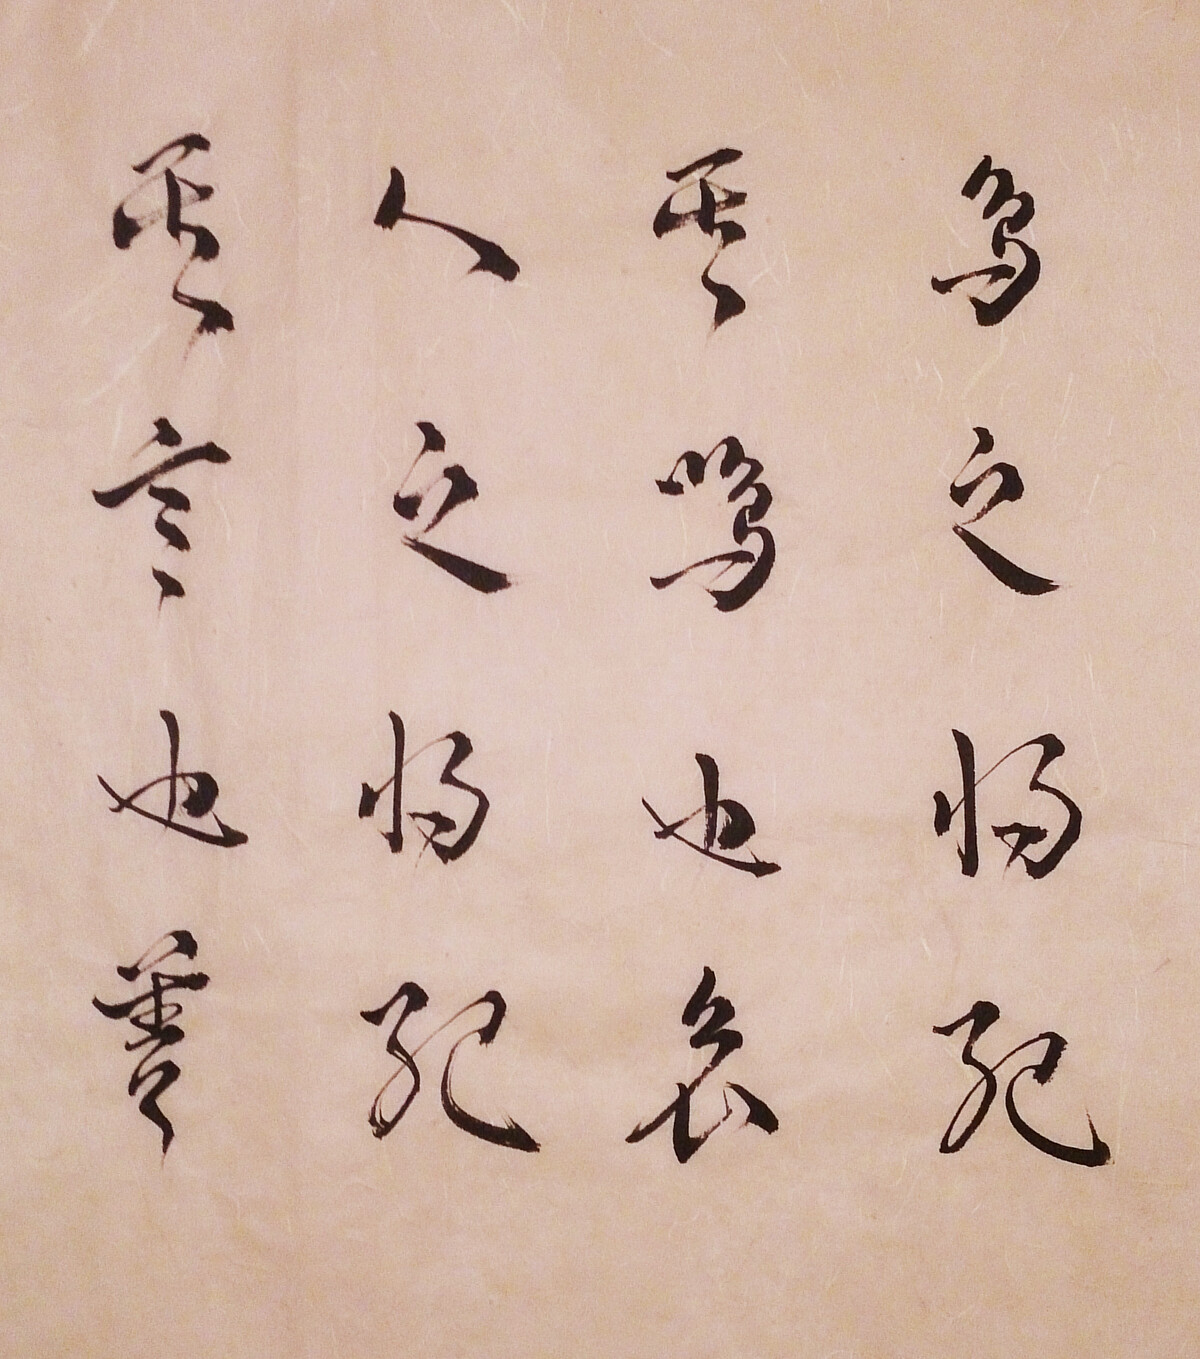 鳥之將死
其鳴也哀
人之將死
其言也善